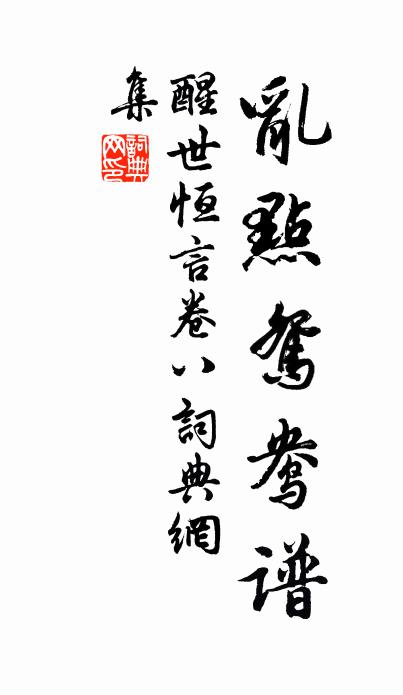 亂點鴛鴦譜
醒世恒言卷八詞典網
集
詞典
网印